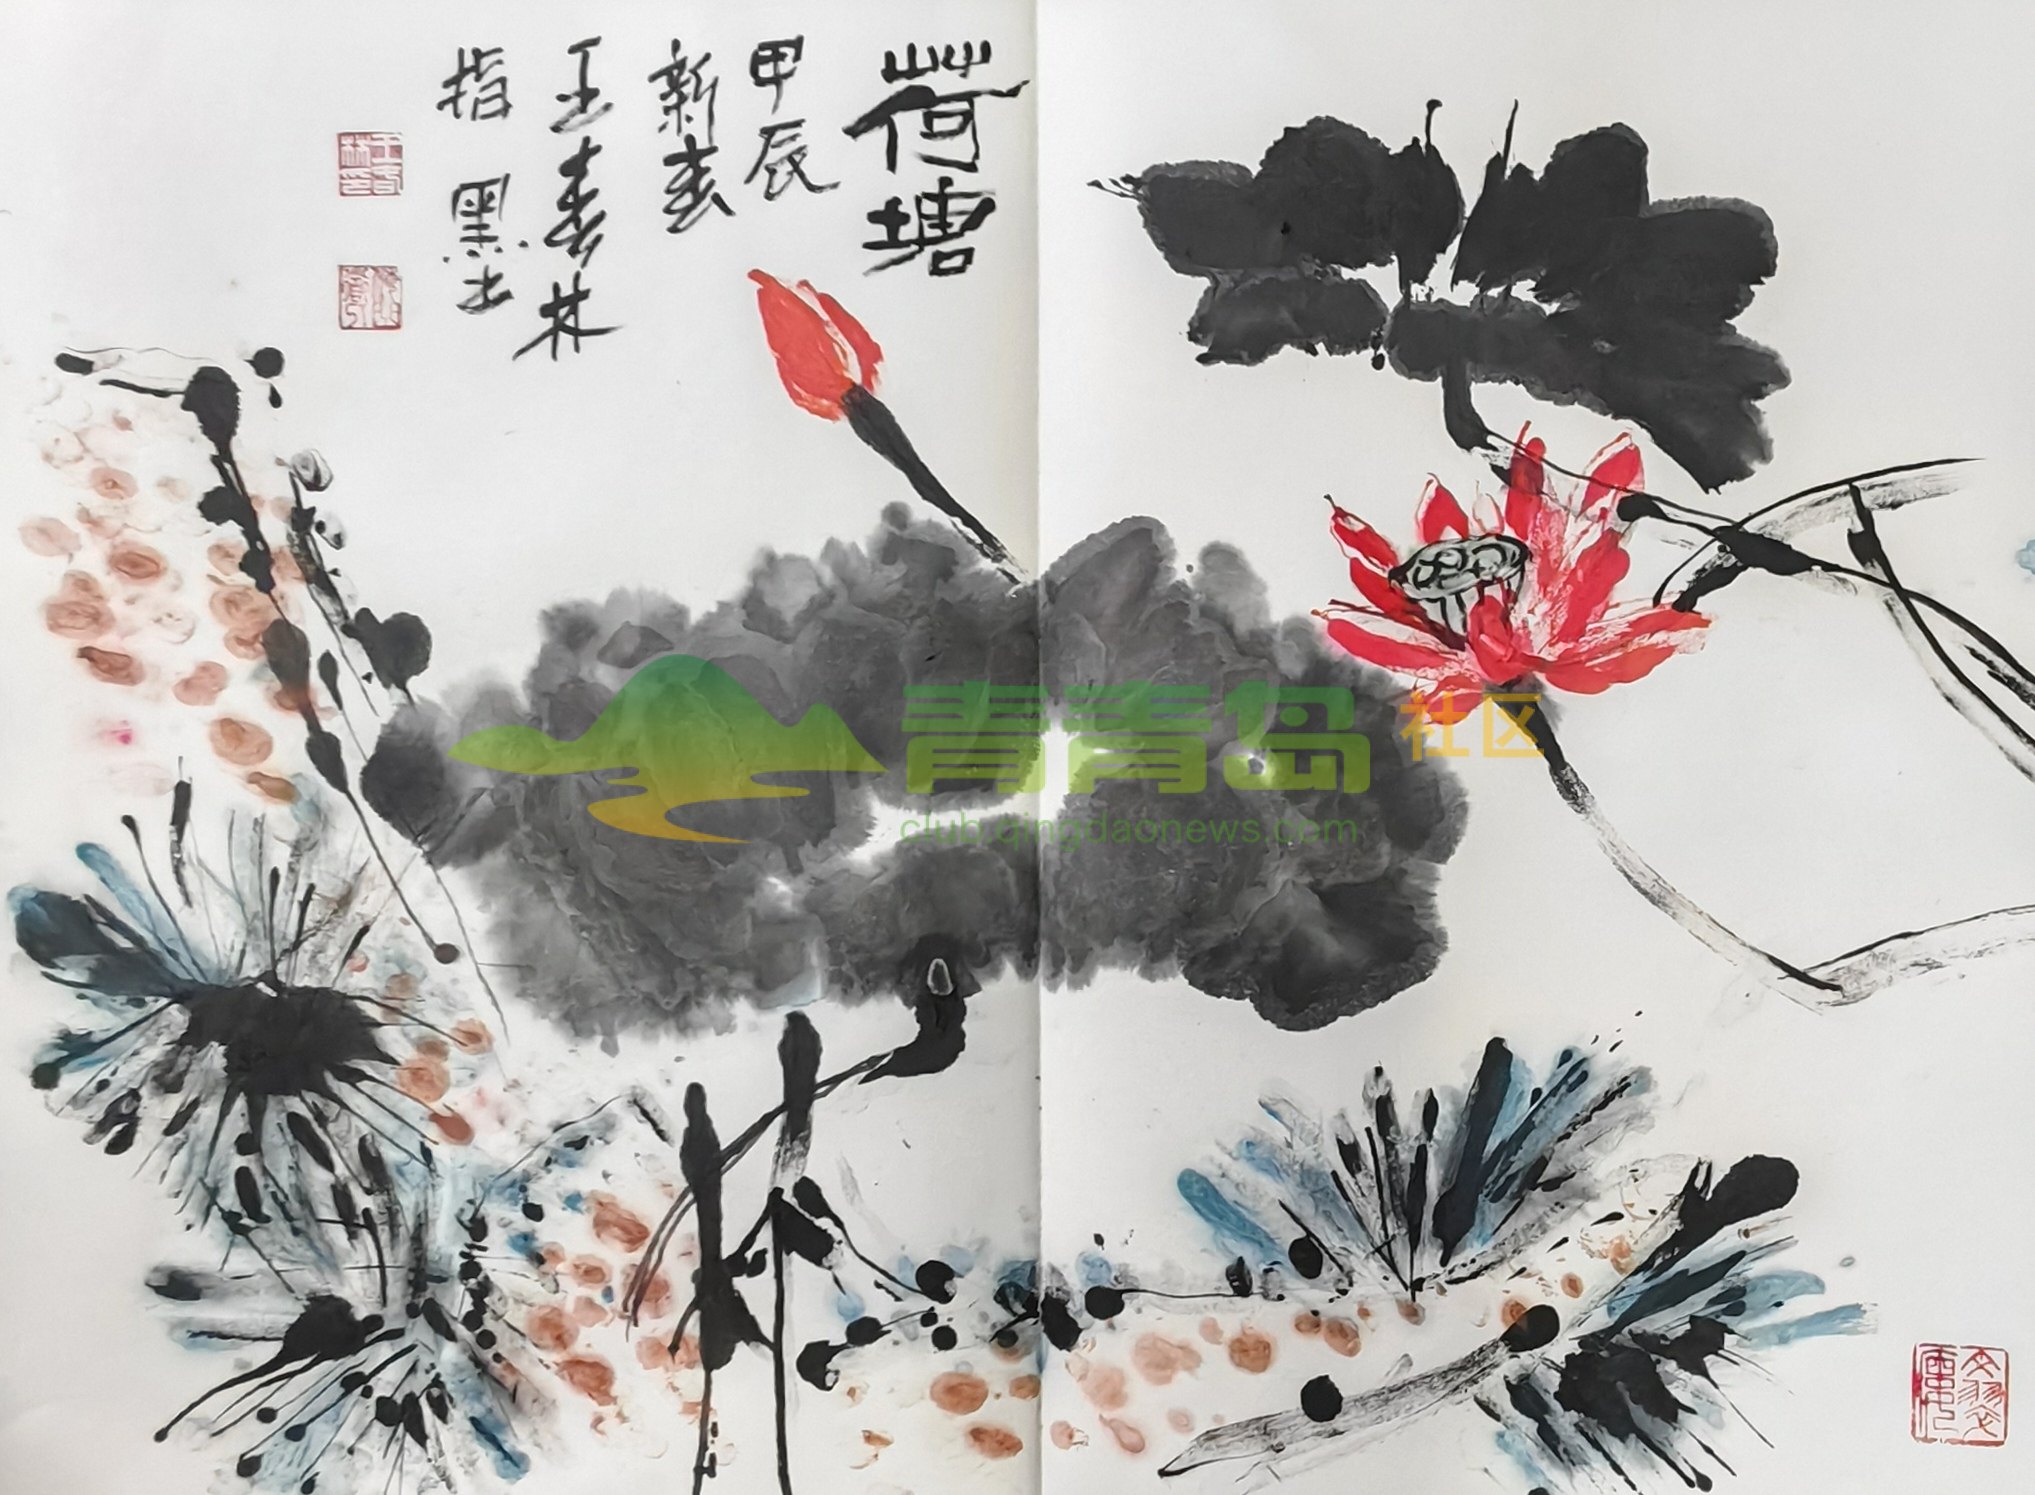 荷塘
甲辰
新春
王春林
指墨
青青岛 社区
club.qingdaonews.com